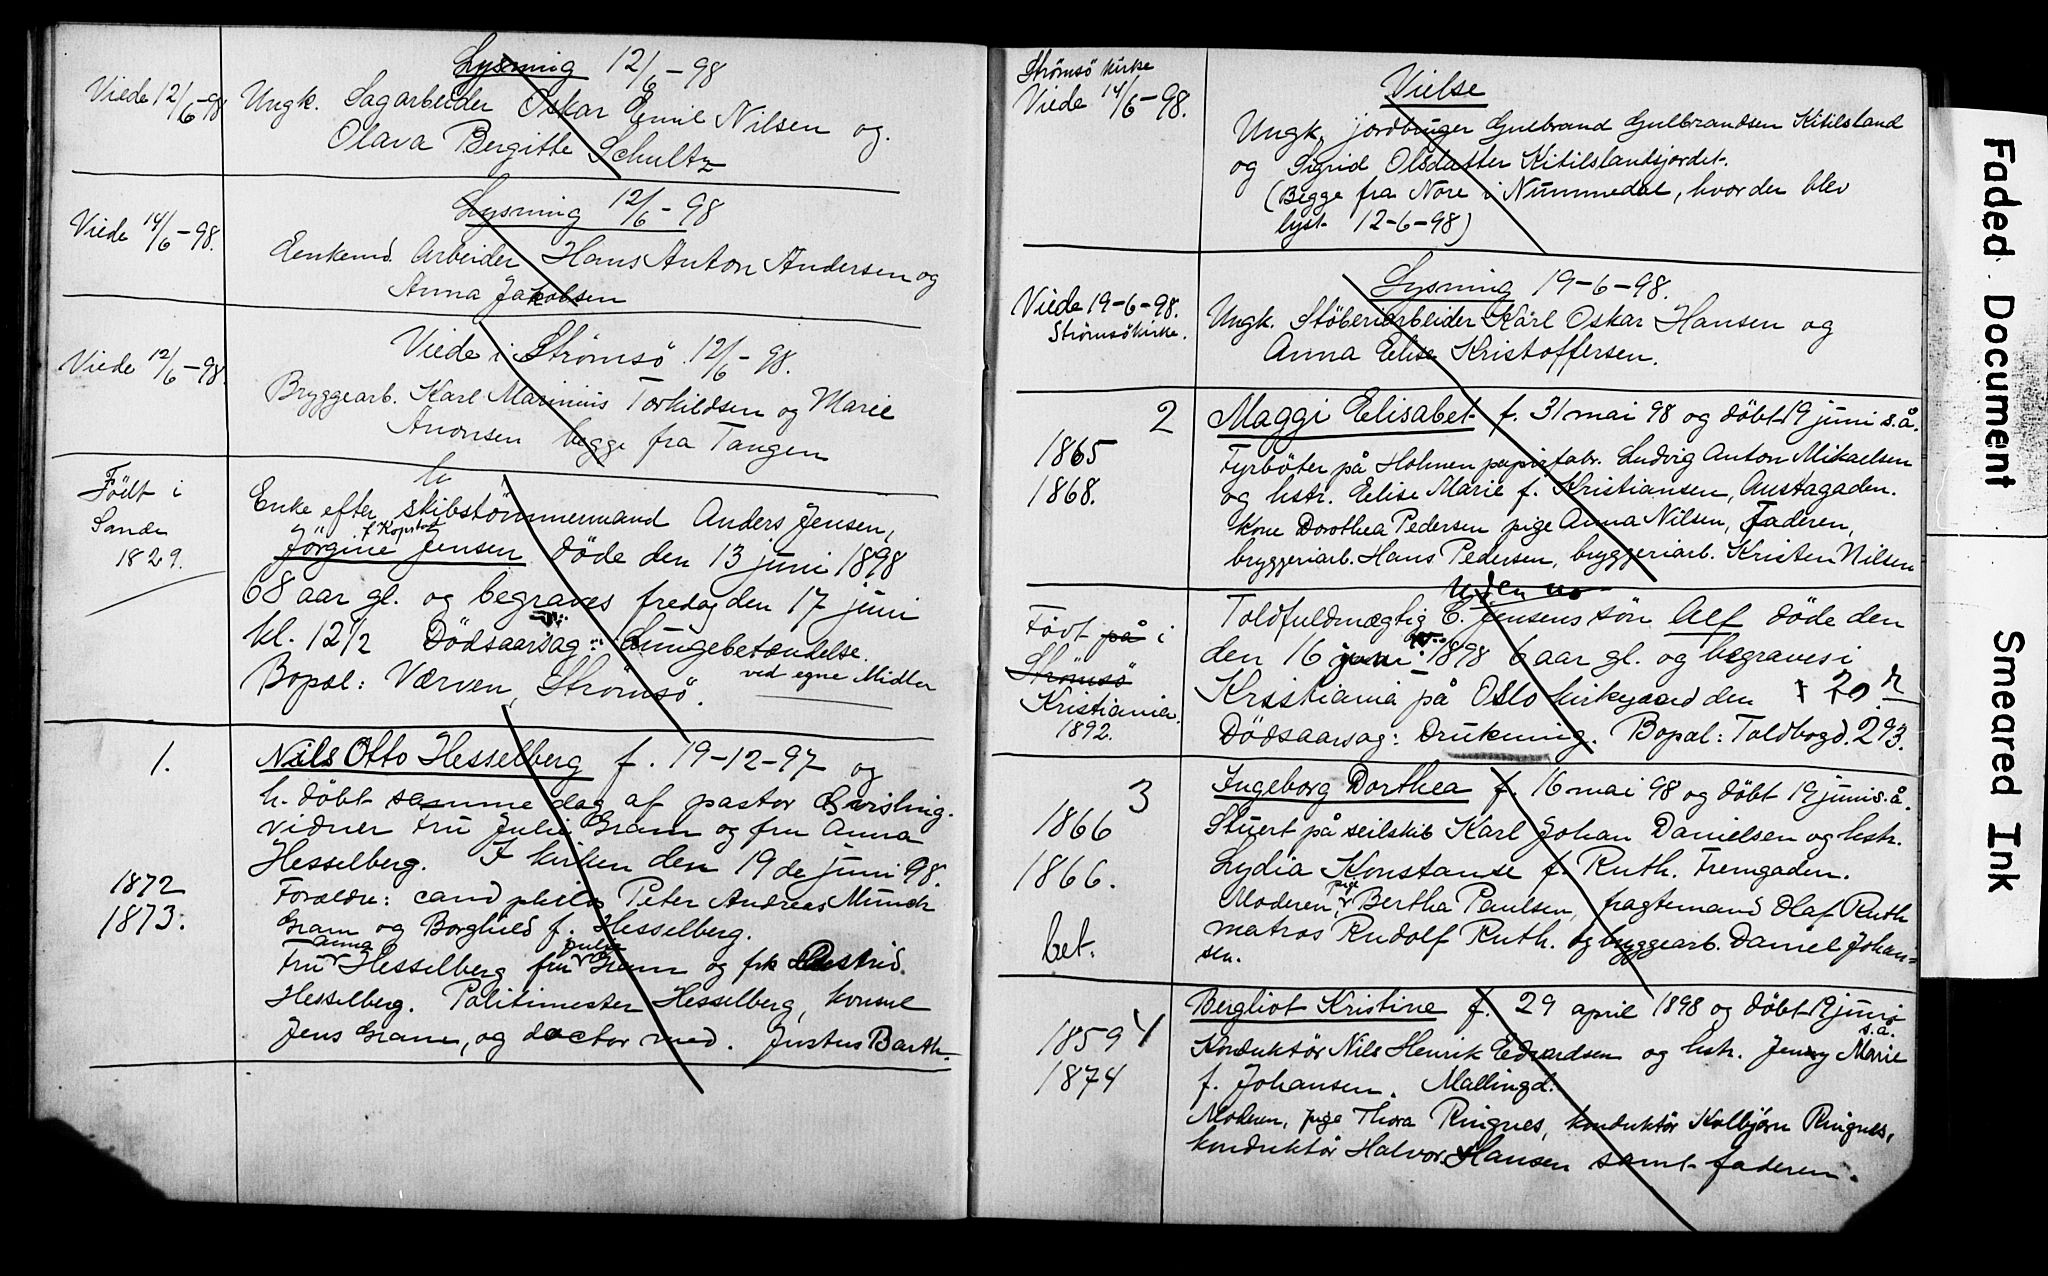 Lysning 12/6 - 98
Viede 12/6-98
Ungk. Sagarbeider Oskar Emil Nilsen og
Olava Bergitte Schultz
Lysning 12/6 - 98
Viede 14/6-98.
Enkemd. Arbeider Hans Anton Andersen og
Anna Jakobsen
Viede i Strømsö 12/6-98.
Viede 12/6-98.
Bryggearb. Karl Marinius Torkildsen og Marie
Aronsen begge fra Tangen
Födt i
Sande
1829.
Enke efter skibstömmermand Anders Jensen,
f. Kopstad
Jörgine Jensen döde den 13 juni 1898
68 aar gl. og begraves fredag den 17 juni
kl. 12 1/2 Dödsaarsag: Lungebetændelse.
ved egne Midler
Bopæl: Værven, Strömsö.
1.
Nils Otto Hesselberg f. 19-12-97 og
h. döbt samme dag af pastor Qvisling.
vidner Fru Julie Gram og fru Anna
Hesselberg. I kirken den 19de juni 98.
1872
1873.
Forældre: cand philos Peter Andreas Munch
Gram og Borghild f. Hesselberg.
Anna julie
Fru Hesselberg fru Gram og frk Astrid
Hesselberg. Politimester Hesselberg, konsul
Jens Gram, og doctor med. Justus Barth.
Strömsö kirke
Viede 14/6-98.
Vielse
Ungk. jordbruger Gulbrand Gulbrandsen Kitilsland
og Sigrid Olsdatter Kitilslandsjordet.
(Begge fra Nore i Nummedal, hvor der blev
lyst 12-6-98)
Lysning 19-6-98.
Viede 19-6-98.
Strömsö kirke.
Ungk. Stöberiarbeider Karl Oskar Hansen og
Anna Elise Kristoffersen.
2
1865
1868.
Maggi Elisabet f. 31 mai 98 og döbt 19 juni s.å.
Fyrböter på Holmen papirfabr. Ludvig Anton Mikaelsen
og hstr. Elise Marie f. Kristiansen, Austagaden.
Kone Dorothea Pedersen pige Anna Nilsen, Faderen,
bryggeriarb. Hans Pedersen, bryggeriarb. Kristen Nilsen
Uden no
Födt på i
Strömsö
Kristiania.
1892.
Toldfuldmægtig C. Jensens sön Alf döde den
den 16 juni 1898 6 aar gl. og begraves i
Kristiania på Oslo kirkegaard den 20
Dödsaarsag: Drukning. Bopæl: Toldbogd. 293.
3
1866
1866.
bet.
Ingeborg Dorthea f. 16 mai 98 og döbt 19 juni s.å.
Stuert på seilskib Karl Johan Danielsen og hstr.
Lydia Konstanse f. Ruth. Fremgaden.
pige
Moderen, Bertha Paulsen, fragtemand Olaf Ruth
matros Rudolf Ruth. og bryggearb. Daniel Johan=
sen.
4
1859
1874
Bergliot Kristine f. 29 april 1898 og döbt 19 juni
s.å.
Konduktör Nils Henrik Edvardsen og hstr. Jenny Marie
f. Johansen. Mallingd.
Moderen, pige Thora Ringnes, konduktör Kolbjörn Ringnes,
konduktör Halvor Hansen samt faderen.
Faded Document
Smeared Ink